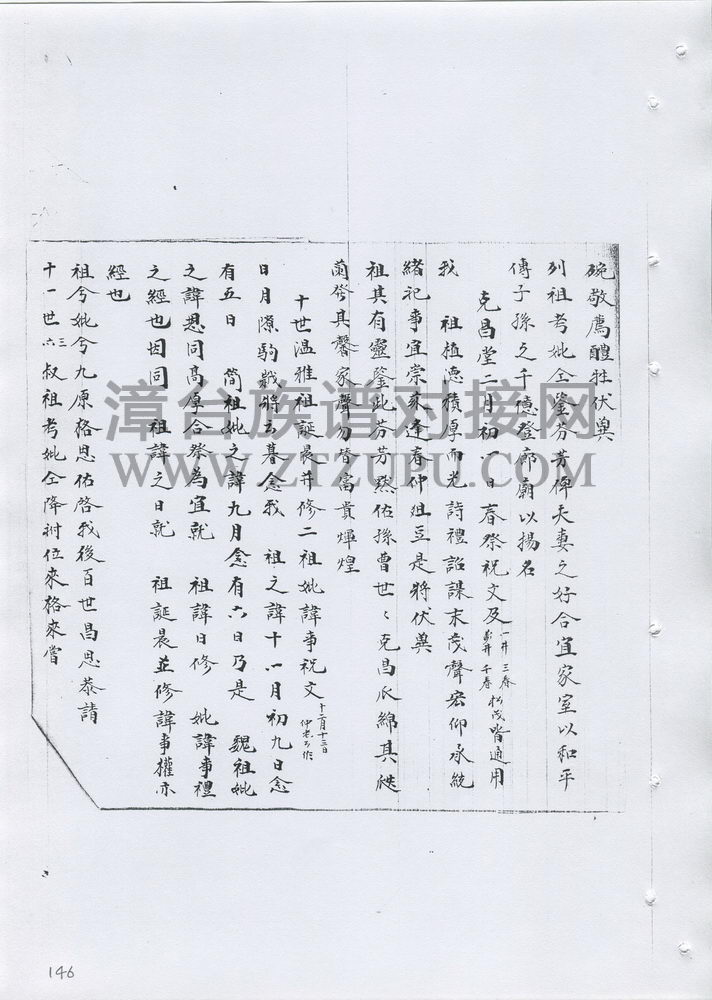 醴牲伏兾
列祖考妣仝鑒芬芳俾夫妻之好合宜家室以和平
傳子孫之千億登廊廟以揚名
克昌堂二月初八日春祭祝文及一井三春千春松茂皆通用
我 祖植德積厚而光詩禮詒謀末茂聲宏仰承統
緒祀事宜崇來逢春仲俎豆是將伏兾
祖其有靈鑒此芬芳默佑孫曾世々克昌瓜綿其瓞
蘭發其馨家聲勿替富貴煇煌
十世溫雅祖誕晨并修二祖妣諱事祝文十二月十三日
日月隙駒歲將云暮念我 祖之諱十一月初九日念
有五日 簡祖妣之諱九月念有六日乃是 魏祖妣
之諱恩同高厚合祭為宜就 祖諱日修 妣諱事禮
之經也因同 祖諱之日就 祖誕晨並修諱事權亦
經也
祖兮妣兮九原格思佑啓我後百世昌思恭請
十一世三六叔祖考妣仝降祔位來格來嘗
漳台族谱对接网
WWW.ZTZUPU.COM
146